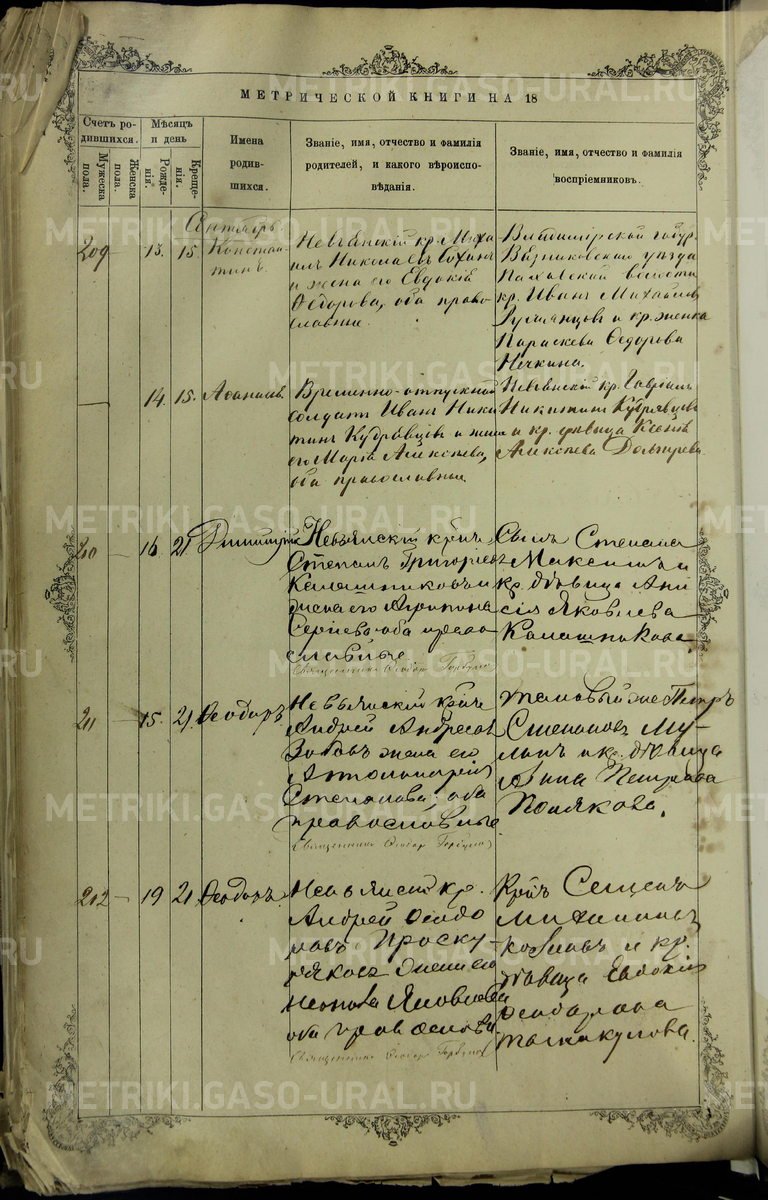 МЕТРИЧЕСКОЙ КНИГИ НА 18
Счетъ ро-
дившихся.
Мужеска
пола.
Женска
пола.
Мѣсяцъ
и день
Рожде-
нія.
Креще-
нія.
Имена
родив-
шихся.
Званіе, имя, отчество и фамилія
родителей, и какого вѣроиспо-
вѣданія.
Званіе, имя, отчество и фамилія
воспріемниковъ.
Сентябрь.
209 — 13. 15. Констан-
тинъ.
Невьянскій кр. Миха
илъ Николаевъ
и жена его Евдокія
Ѳедорова, оба право-
славные.
Владимірской губер.
Вязниковскаго уѣзда
волости
кр. Иванъ Михайловъ
Румянцовъ и кр. женка
Параскева Ѳедорова
Нечкина.
— 14. 15. Аѳанасій.
Временно-отпускной
солдатъ Иванъ Ники
тинъ Кудрявцовъ и жена
его Марія Алексѣева,
оба православные
Невьянскій кр. Гавріилъ
Никитинъ Кудрявцовъ
и кр. дѣвица Ксенія
Алексѣева
210 — 16 21 Димитрій
Невьянскій крѣн
Степанъ Григорьевъ
Калашниковъ и
жена его Агрипина
Сергіева оба право
славные
Священникъ Ѳеодоръ Горбуновъ
Сынъ Степана
Максимъ и
кр. дѣвица Ани
сія Яковлева
Калашникова
211 — 15. 21. Ѳеодоръ
Невьянскій крѣн
Андрей Андреевъ
Зотовъ жена его
Апполинарія
Степанова, оба
православные
Священникъ Ѳеодоръ Горбуновъ
таковый же Петръ
Степановъ Му-
и кр. дѣвица
Анна Петрова
Полякова.
212 — 19 21 Ѳеодоръ
Невьянскій кр.
Андрей Ѳеодо
ровъ Проску
ряковъ жена его
Яковлева
оба православн.
Священникъ Ѳеодоръ Горбуновъ
Крѣн Семенъ
Козловъ и кр.
дѣвица Евдокія
Ѳеодорова
METRIKI.GASO-URAL.RU